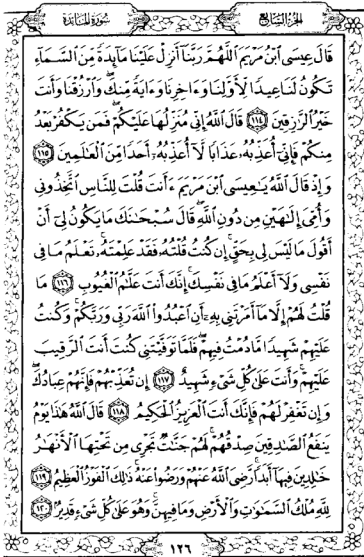 سورة المائدة
الجزء السابع
قَالَ عِيسَى ابْنُ مَرْيَمَ اللَّهُمَّ رَبَّنَا أَنزِلْ عَلَيْنَا مَائِدَةً مِّنَ السَّمَاءِ
تَكُونُ لَنَا عِيدًا لِّأَوَّلِنَا وَءَاخِرِنَا وَءَايَةً مِّنكَ وَارْزُقْنَا وَأَنتَ
خَيْرُ الرَّٰزِقِينَ ١١٤ قَالَ اللَّهُ إِنِّي مُنَزِّلُهَا عَلَيْكُمْ فَمَن يَكْفُرْ بَعْدُ
مِنكُمْ فَإِنِّي أُعَذِّبُهُ عَذَابًا لَّا أُعَذِّبُهُ أَحَدًا مِّنَ الْعَٰلَمِينَ ١١٥
وَإِذْ قَالَ اللَّهُ يَٰعِيسَى ابْنَ مَرْيَمَ ءَأَنتَ قُلْتَ لِلنَّاسِ اتَّخِذُونِي
وَأُمِّيَ إِلَٰهَيْنِ مِن دُونِ اللَّهِ قَالَ سُبْحَٰنَكَ مَا يَكُونُ لِي أَنْ
أَقُولَ مَا لَيْسَ لِي بِحَقٍّ إِن كُنتُ قُلْتُهُ فَقَدْ عَلِمْتَهُ تَعْلَمُ مَا فِي
نَفْسِي وَلَا أَعْلَمُ مَا فِي نَفْسِكَ إِنَّكَ أَنتَ عَلَّٰمُ الْغُيُوبِ ١١٦ مَا
قُلْتُ لَهُمْ إِلَّا مَا أَمَرْتَنِي بِهِ أَنِ اعْبُدُوا اللَّهَ رَبِّي وَرَبَّكُمْ وَكُنتُ
عَلَيْهِمْ شَهِيدًا مَّا دُمْتُ فِيهِمْ فَلَمَّا تَوَفَّيْتَنِي كُنتَ أَنتَ الرَّقِيبَ
عَلَيْهِمْ وَأَنتَ عَلَىٰ كُلِّ شَيْءٍ شَهِيدٌ ١١٧ إِن تُعَذِّبْهُمْ فَإِنَّهُمْ عِبَادُكَ
وَإِن تَغْفِرْ لَهُمْ فَإِنَّكَ أَنتَ الْعَزِيزُ الْحَكِيمُ ١١٨ قَالَ اللَّهُ هَٰذَا يَوْمُ
يَنفَعُ الصَّٰدِقِينَ صِدْقُهُمْ لَهُمْ جَنَّٰتٌ تَجْرِي مِن تَحْتِهَا الْأَنْهَٰرُ
خَٰلِدِينَ فِيهَا أَبَدًا رَّضِيَ اللَّهُ عَنْهُمْ وَرَضُوا عَنْهُ ذَٰلِكَ الْفَوْزُ الْعَظِيمُ ١١٩
لِلَّهِ مُلْكُ السَّمَٰوَٰتِ وَالْأَرْضِ وَمَا فِيهِنَّ وَهُوَ عَلَىٰ كُلِّ شَيْءٍ قَدِيرٌ ١٢٠
١٢٦